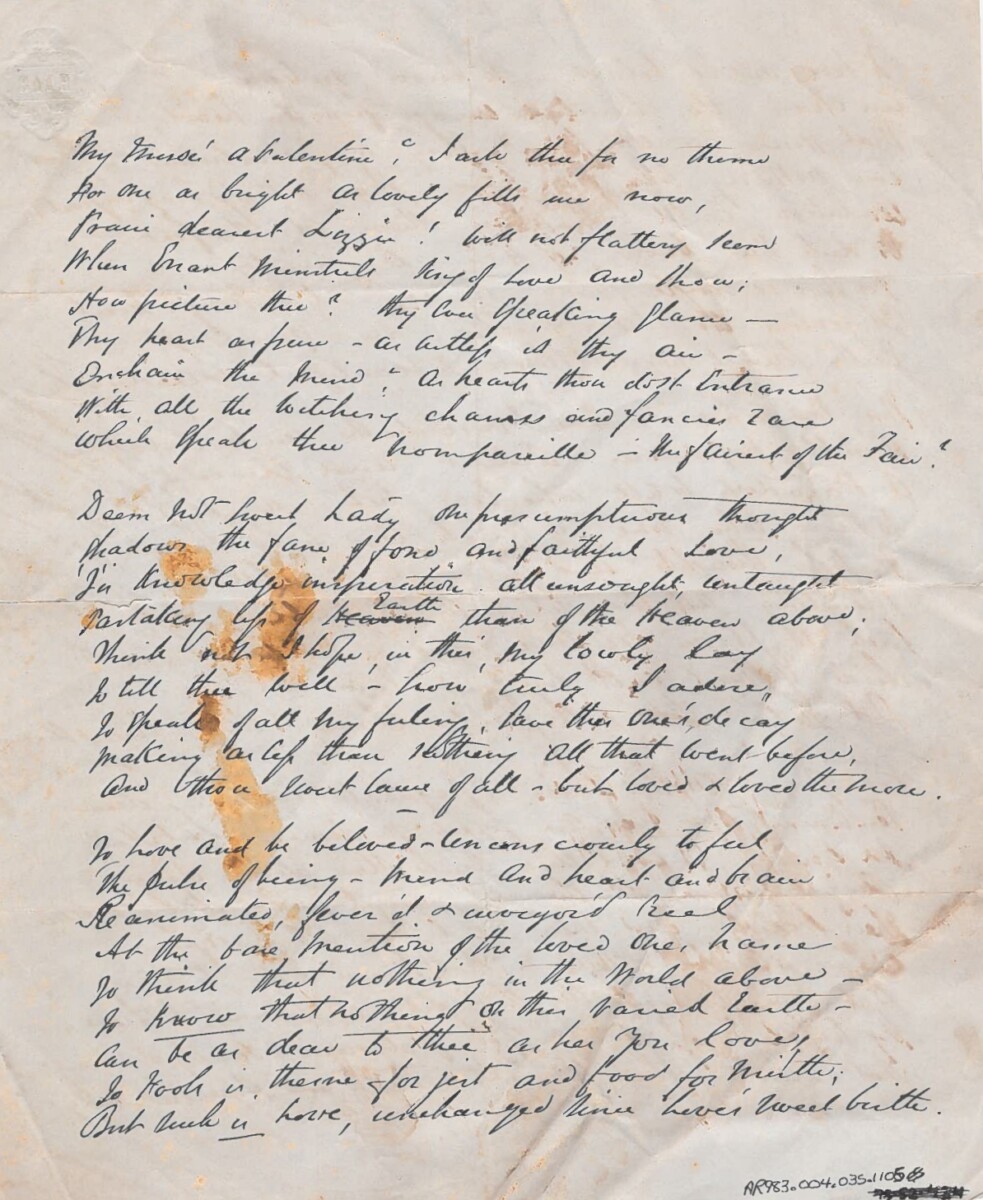 My Muse! a Valentine? I ask thee for no theme
For one as bright as lovely fills me now,
Praise dearest Lizzie! will not flattery seem
When Errant Minstrels sing of Love and thou;
How picture thee? thy Eye Speaking glance —
Thy heart as pure – as artless is thy air –
Enchain the Mind? as hearts thou dost Entrance
With all the witching charms and fancies rare
Which speak thee Nompareille – the fairest of the Fair?
Deem not sweet Lady one presumptuous thought
Shadows the fane of fond and faithful Love,
'Tis Knowledge inspiration all unsought, untaught
Partaking less of Heaven Earth than of the Heaven above;
Think not I hope, in this, my lowly Lay
To tell thee well – how truly I adore,
To speak of all my feelings, save this one's, decay
Making as less than nothing all that went before,
And thou sweet cause of all – but loved & loved the more.
To love and be beloved – unconsciously to feel
The pulse of being – mind and heart and brain
Reanimated, fever'd & reel
At the bare mention of the loved one's name
To think that nothing in the World above –
To know that nothing on this varied Earth –
Can be as dear to thee as her you love,
To Fools is theme for jest and food for Mirth;
But such is Love, unchanged since Love's sweet birth.
AR983.004.035.1105